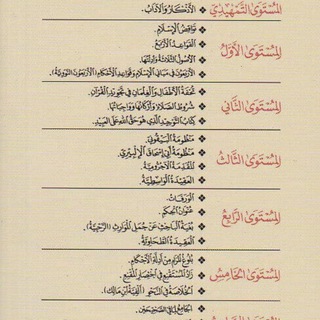 المُسْتَوَى التَّمْهِيدِيّ
❖ الأَذْكَارُ وَالآدَابُ.
المُسْتَوَى الأَوَّلُ
❖ نَوَاقِضُ الإِسْلَامِ.
❖ القَوَاعِدُ الأَرْبَعُ.
❖ الأُصُولُ الثَّلَاثَةُ وَأَدِلَّتُهَا.
❖ الأَرْبَعُونَ فِي مَبَانِي الإِسْلَامِ وَقَوَاعِدِ الأَحْكَامِ (الأَرْبَعُونَ النَّوَوِيَّةُ).
المُسْتَوَى الثَّانِي
❖ تُحْفَةُ الأَطْفَالِ وَالغِلْمَانِ فِي تَجْوِيدِ القُرْآنِ.
❖ شُرُوطُ الصَّلَاةِ وَأَرْكَانُهَا وَوَاجِبَاتُهَا.
❖ كِتَابُ التَّوْحِيدِ الَّذِي هُوَ حَقُّ اللهِ عَلَى العَبِيدِ.
المُسْتَوَى الثَّالِثُ
❖ مَنْظُومَةُ البَيْقُونِيِّ.
❖ مَنْظُومَةُ أَبِي إِسْحَاقَ الإِلْبِيرِيِّ.
❖ المُقَدِّمَةُ الآجُرُّومِيَّةُ.
❖ العَقِيدَةُ الوَاسِطِيَّةُ.
المُسْتَوَى الرَّابِعُ
❖ الوَرَقَاتُ.
❖ عُنْوَانُ الحِكَمِ.
❖ بُغْيَةُ البَاحِثِ عَنْ جُمَلِ المَوَارِثِ (الرَّحَبِيَّةُ).
❖ العَقِيدَةُ الطَّحَاوِيَّةُ.
المُسْتَوَى الخَامِسُ
❖ بُلُوغُ المَرَامِ مِنْ أَدِلَّةِ الأَحْكَامِ.
❖ زَادُ المُسْتَقْنِعِ فِي اخْتِصَارِ المُقْنِعِ.
❖ الخُلَاصَةُ فِي النَّحْوِ (أَلْفِيَّةُ ابْنِ مَالِكٍ).
❖ الصَّحِيحَيْنِ.